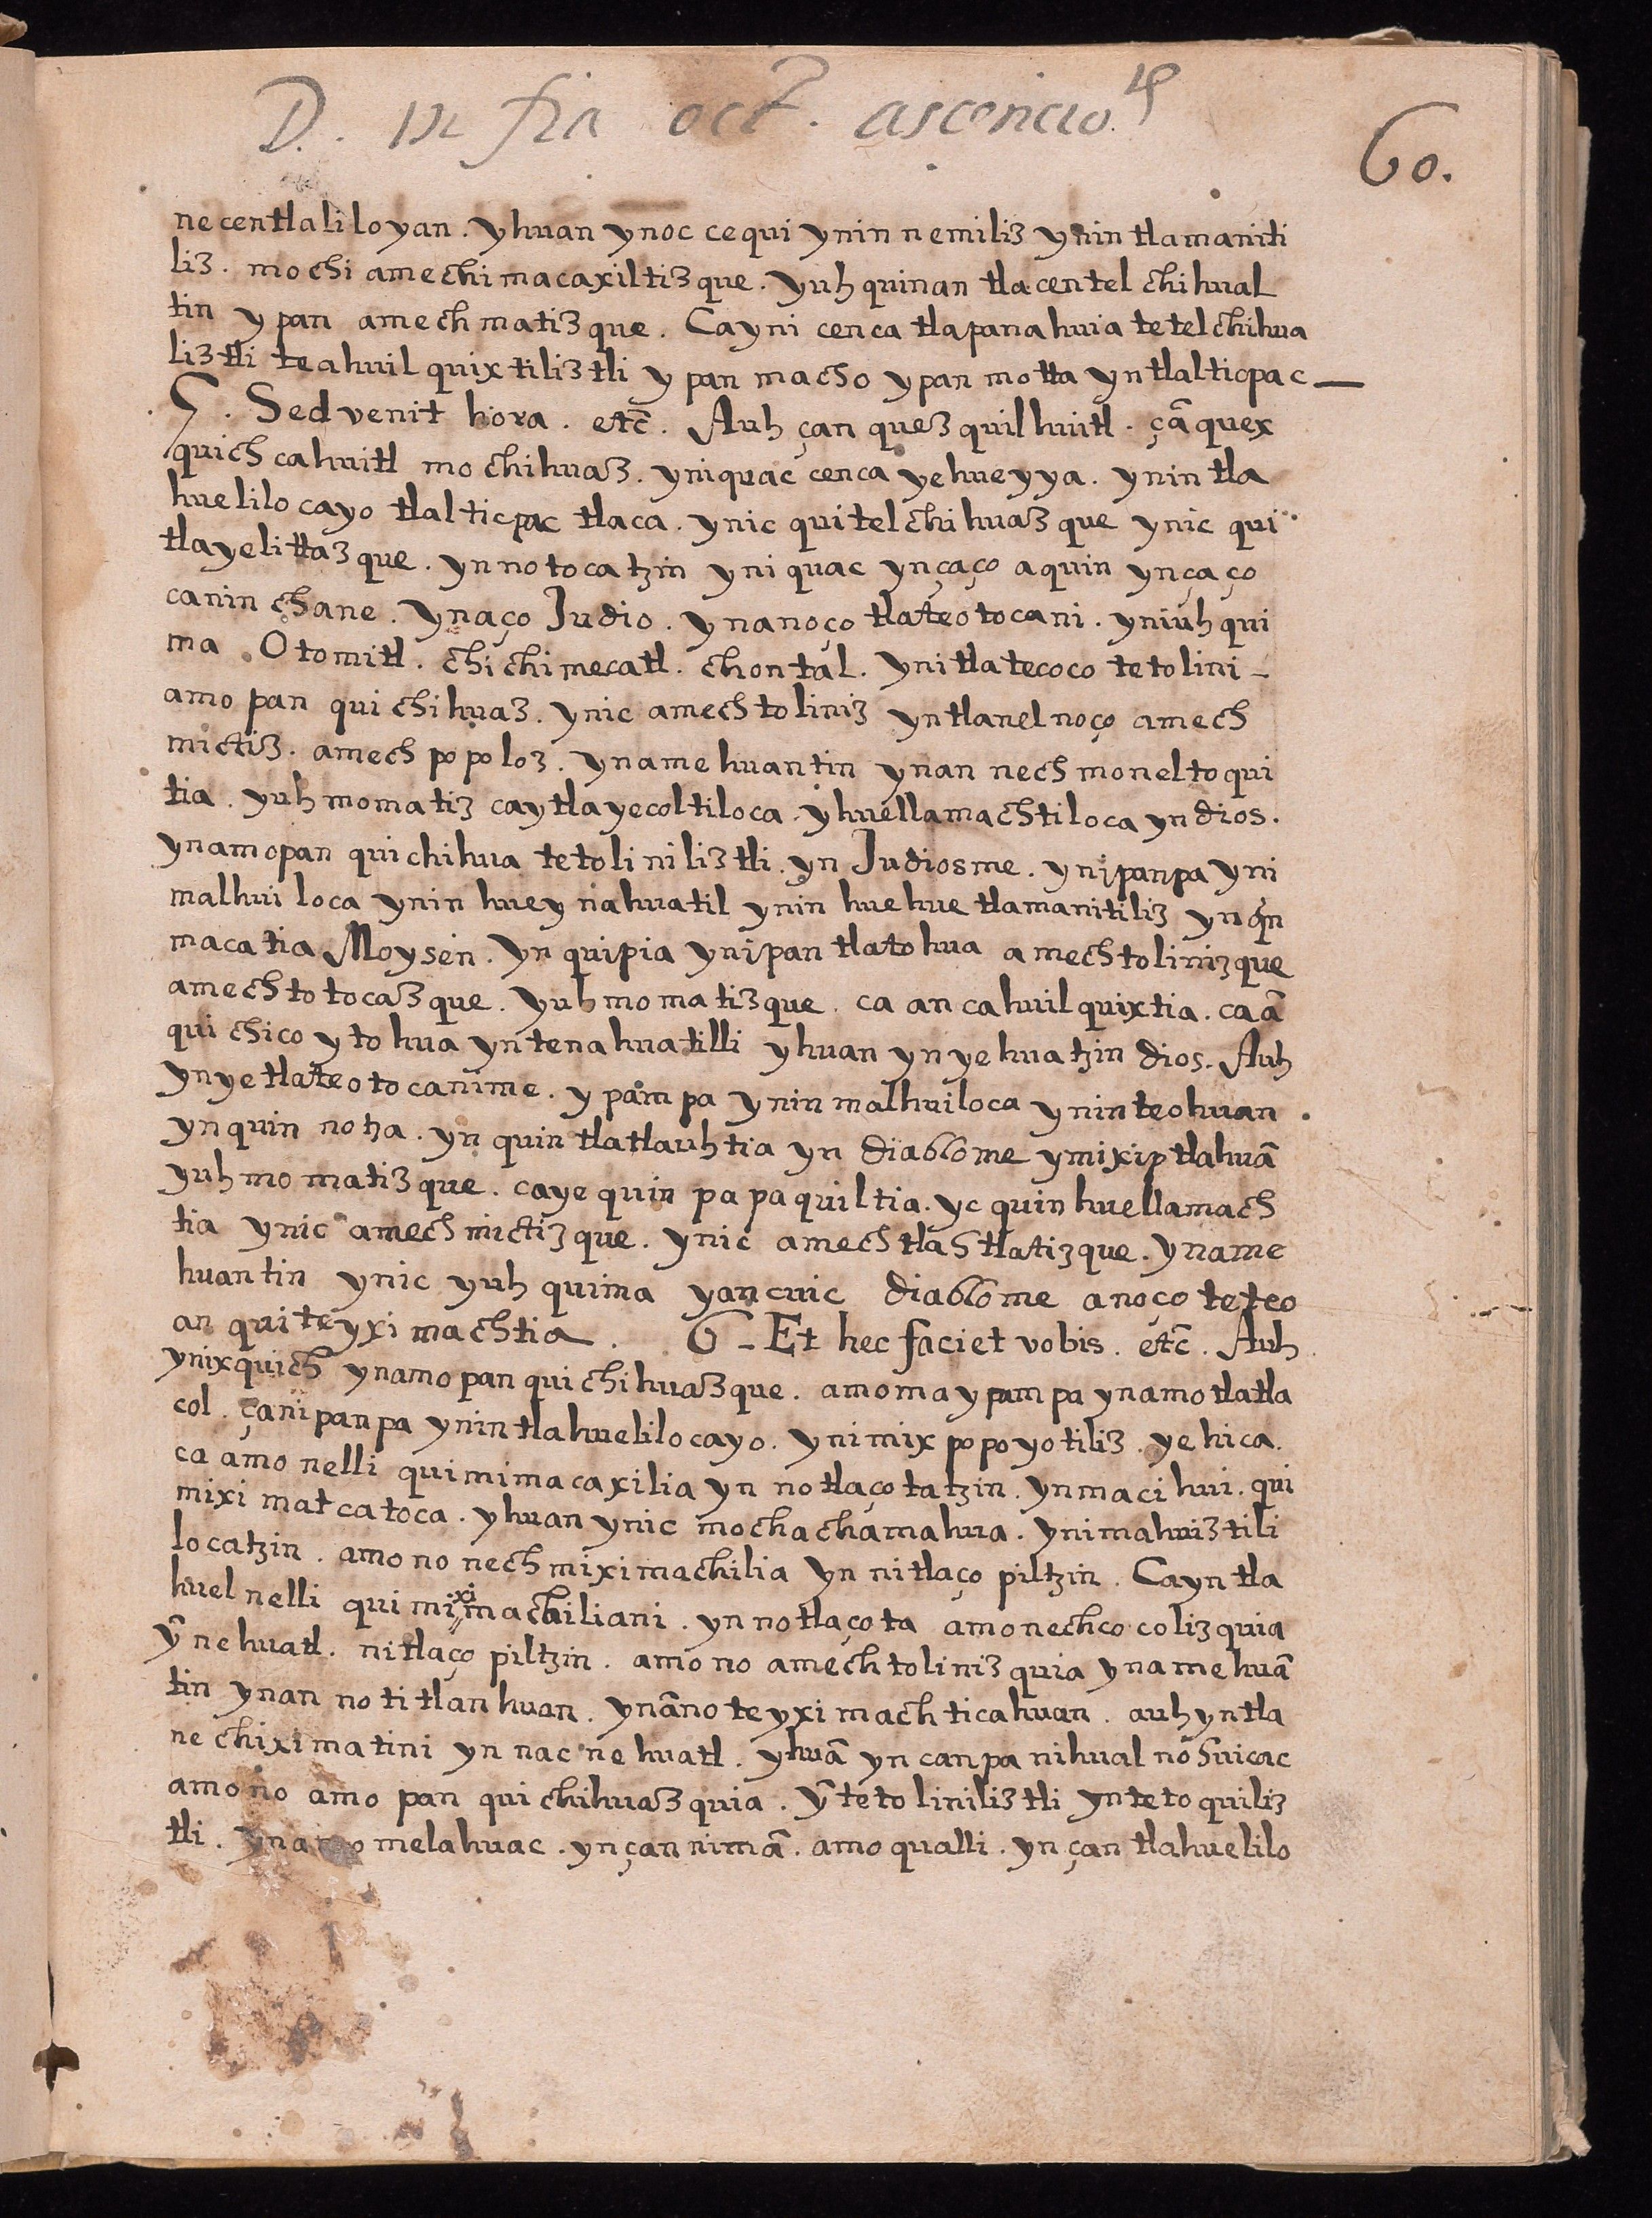 D. infra oct. ascencio.
60.
necentlaliloyan. yhuan ynoc cequi ynin nemiliz ynin tlamaniti
liz. mochi amechimacaxiltizque. yuhquinan tlacentelchihual
tin ypan amechmatizque. Cayni cenca tlapanahuia tetelchihua
liztli teahuilquixtiliztli ypan macho ypan motta yn tlalticpac —
5. Sed venit hora. etc̃. Auh çan quezquilhuitl. çã quex
quichcahuitl mochihuaz. yniquac cenca yehueyya. ynin tla
huelilocayo tlalticpac tlaca. ynic quitelchihuazque ynic qui
tlayelittazque. yn notocatzin yniquac ynçaço aquin ynçaço
canin chane. ynaço Judio. ynanoço tlateotocani. yniuhqui
ma Otomitl. chichimecatl. chontal. ynitlatecoco tetolini -
amopan quichihuaz. ynic amechtoliniz yntlanelnoço amech
mictiz. amechpopoloz. ynamehuantin ynannechmoneltoqui
tia. yuhmomatiz caytlayecoltiloca yhuellamachtiloca yn dios.
ynamopan quichihua tetoliniliztli. yn Judiosme. ynipanpa yni
malhuiloca ynin huey nahuatil ynin huehuetlamanitiliz ynq̃n
macatia Moysen. yn quipia ynipan tlatohua amechtolinizque
amechtotocazque. yuhmomatizque. ca ancahuilquixtia. caã
quichicoytohua yntenahuatilli yhuan ynyehuatzin dios. Auh
ynyetlateotocanime. ypampa yninmalhuiloca yninteohuan.
ynquin notza. yn quintlatlauhtia yn diablome ymixiptlahuã
yuhmomatizque. cayequin papaquiltia. yc quinhuellamach
tia ynic amechmictizque. ynic amechtlahtlatizque. yname
huantin ynic yuhquima yancuic diablome anoço teteo
anquiteyximachtia. 6 - Et hec faciet vobis. etc̃. Auh
ynixquich ynamopan quichihuazque. amoma ypampa ynamotlatla
col. çanipanpa ynintlahuelilocayo. ynimixpopoyotiliz. yehica.
ca amo nelli quimimacaxilia yn notlaçotatzin. ynmacihui. qui
miximatcatoca. yhuan ynic mochachamahua. ynimahuiztili
locatzin. amono nechmiximachilia yn nitlaçopiltzin. Cayntla
huelnelli quimiximachiliani. yn notlaçota amonechcocolizquia
ỹnehuatl. nitlaçopiltzin. amono amechtolinizquia ynamehuã
tin ynannotitlanhuan. ynãnoteyximachticahuan. auhyntla
nechiximatini yn nac nehuatl. yhuã yn canpa nihualnohuicac
amono amopan quichihuazquia. ỹ tetoliniliztli yntetoquiliz
tli. ynamo melahuac. ynçannimã. amo qualli. ynçan tlahuelilo